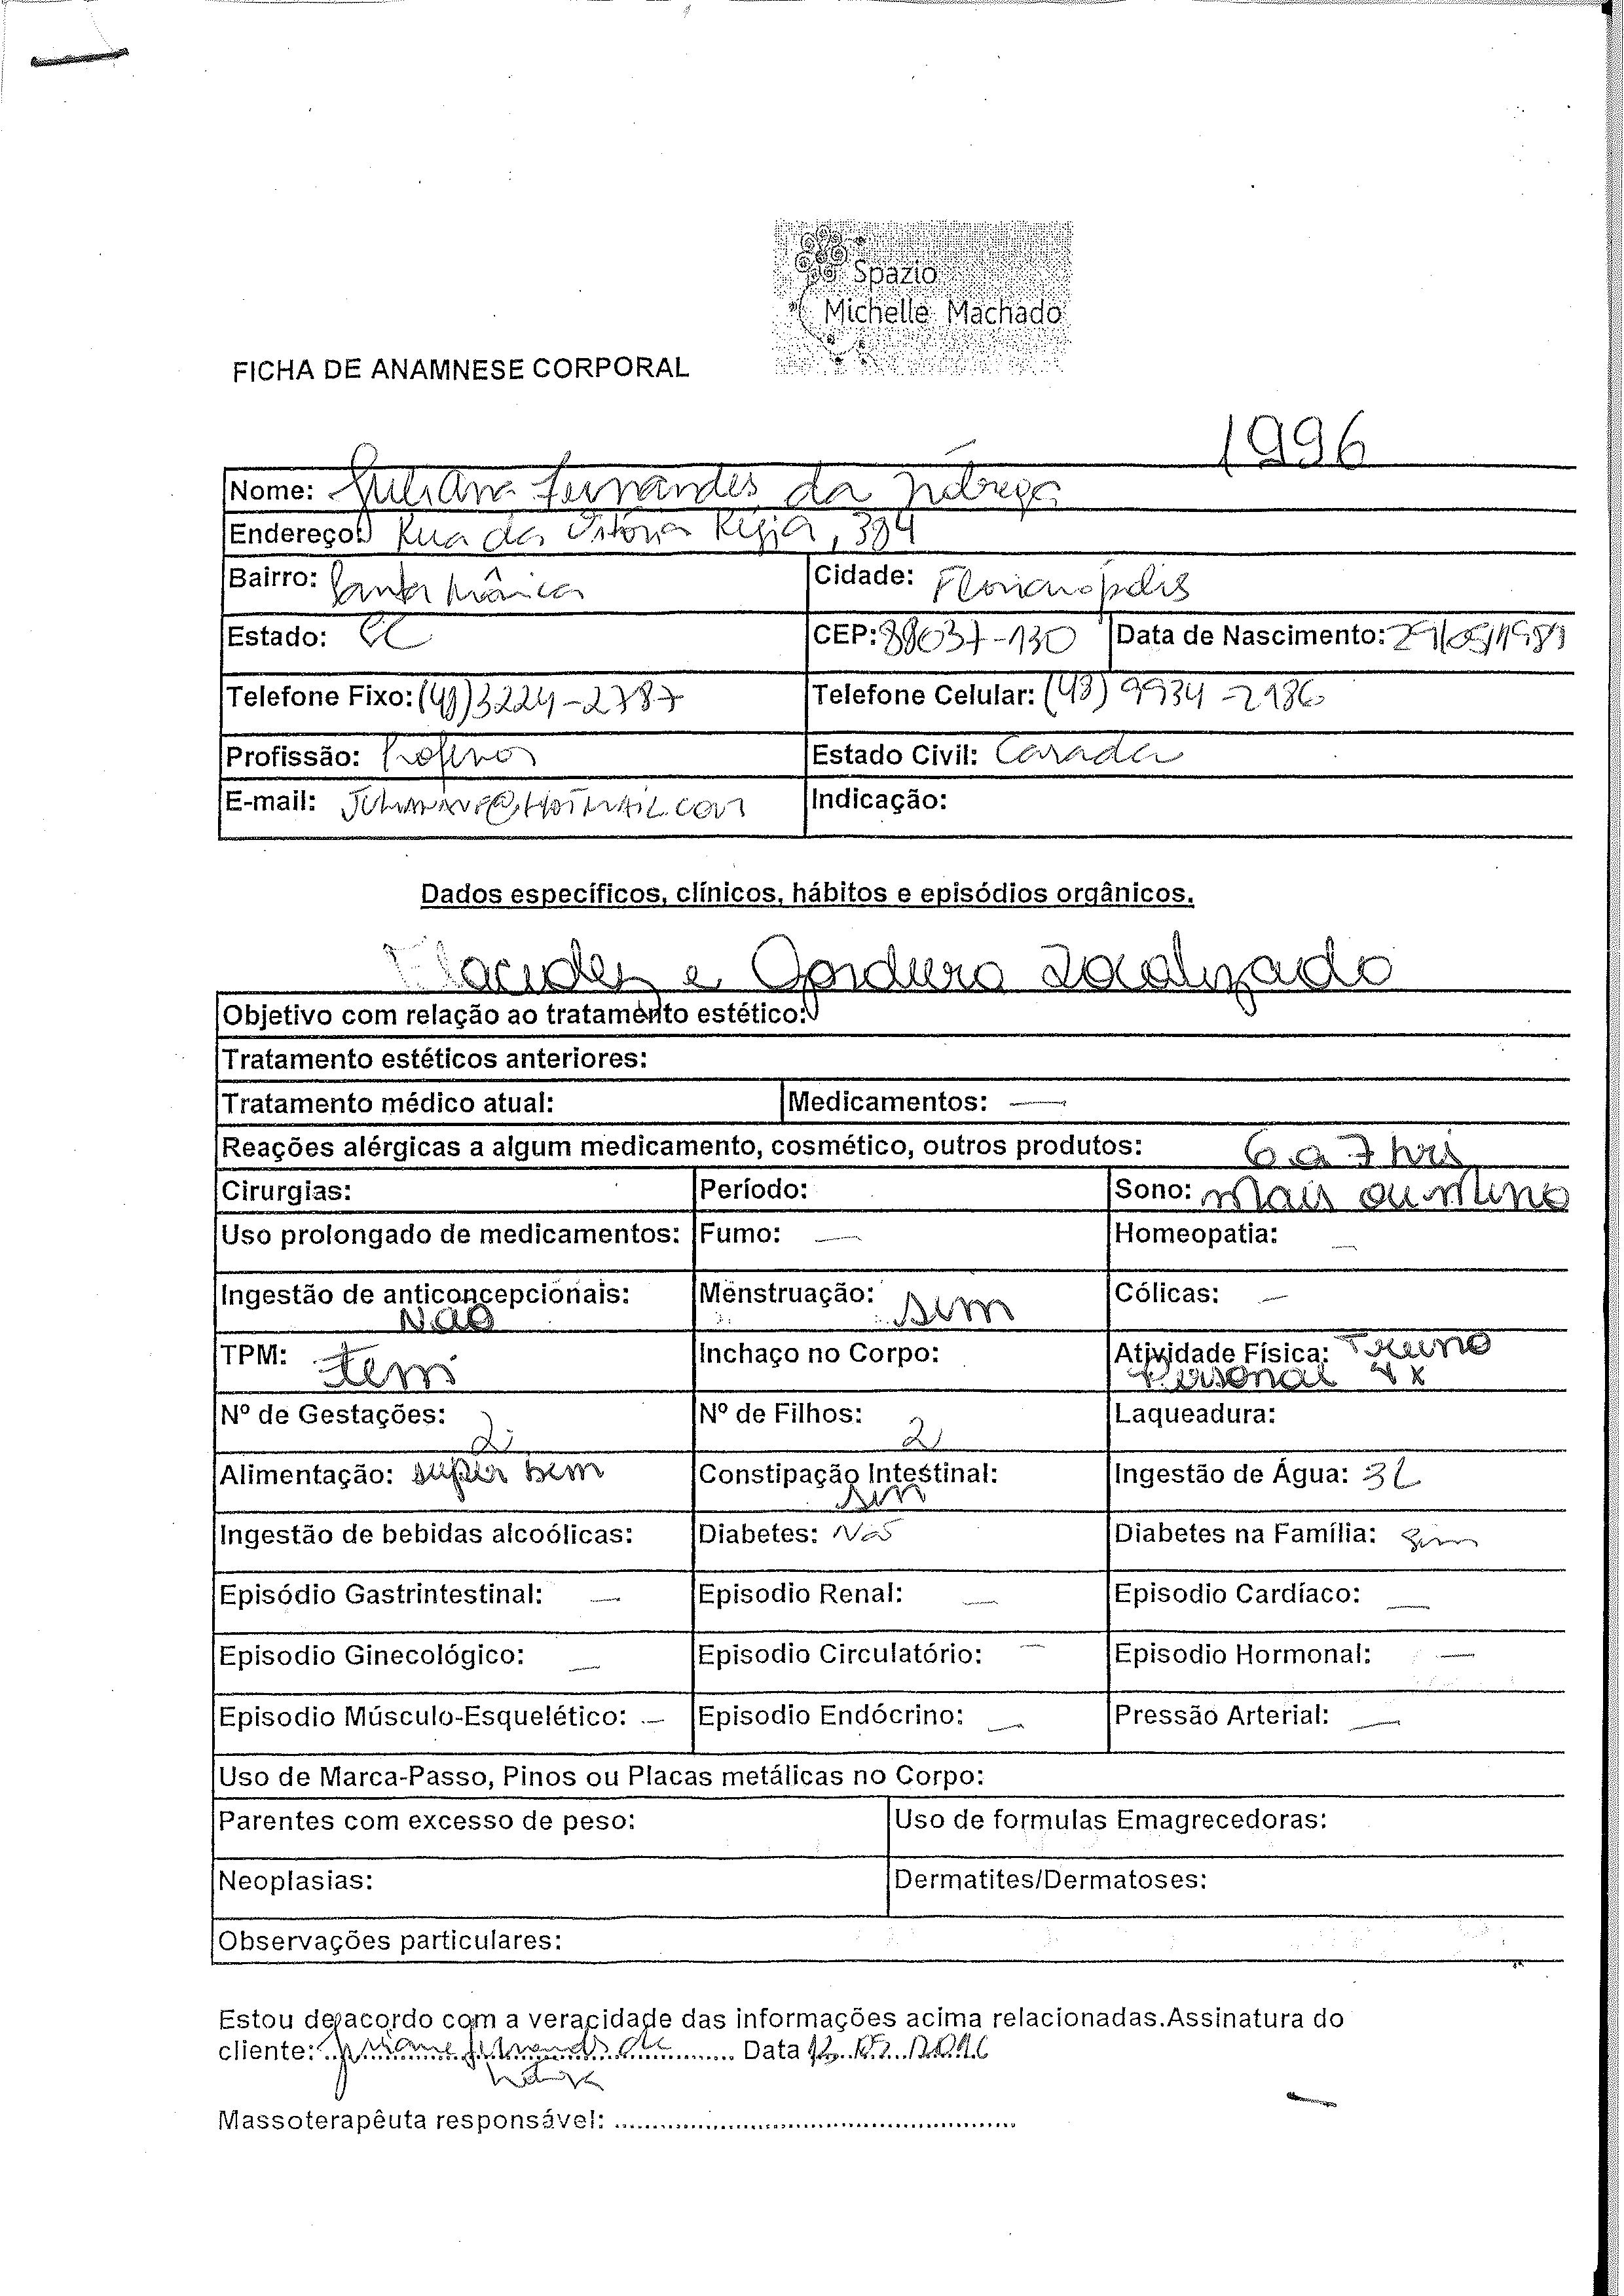 Spazio
Michelle Machado
FICHA DE ANAMNESE CORPORAL
1996
Nome: Juliana Fernandes da Nóbrega
Endereço: Rua da Vitória Régia, 384
Bairro: Santa Mônica Cidade: Florianópolis
Estado: SC CEP: 88037-130 Data de Nascimento: 29/05/1981
Telefone Fixo: (48) 3224-2787 Telefone Celular: (48) 9934-2186
Profissão: Estado Civil: Casada
E-mail: Indicação:
Dados específicos, clínicos, hábitos e episódios orgânicos.
Flacidez e Gordura Localizado
Objetivo com relação ao tratamento estético:
Tratamento estéticos anteriores:
Tratamento médico atual: Medicamentos: —
Reações alérgicas a algum medicamento, cosmético, outros produtos: 6 a 7 hrs
Cirurgias: Período: Sono: mais ou meno
Uso prolongado de medicamentos: Fumo: — Homeopatia: —
Ingestão de anticoncepcionais: Menstruação: sim Cólicas: —
Não
TPM: tem Inchaço no Corpo: Atividade Física: Treino
Personal 4x
Nº de Gestações: 2 Nº de Filhos: 2 Laqueadura:
Alimentação: super bem Constipação Intestinal: Ingestão de Água: 3L
sim
Ingestão de bebidas alcoólicas: Diabetes: Não Diabetes na Família: sim
Episódio Gastrintestinal: — Episodio Renal: — Episodio Cardíaco: —
Episodio Ginecológico: — Episodio Circulatório: — Episodio Hormonal: —
Episodio Músculo-Esquelético: — Episodio Endócrino: — Pressão Arterial: —
Uso de Marca-Passo, Pinos ou Placas metálicas no Corpo:
Parentes com excesso de peso: Uso de formulas Emagrecedoras:
Neoplasias: Dermatites/Dermatoses:
Observações particulares:
Estou de acordo com a veracidade das informações acima relacionadas.Assinatura do
cliente: Juliana Fernandes da Data
Nóbrega
Massoterapêuta responsável: ....................................................